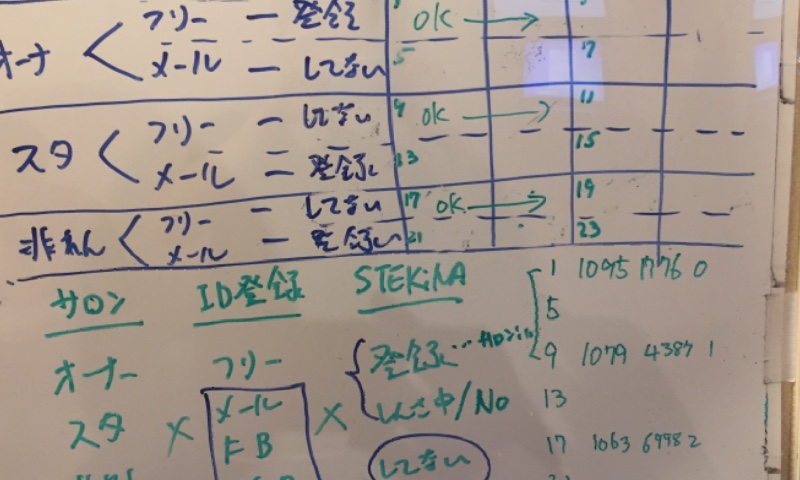 フリー ー 登録 OK →
オーナ < メール ー してない 5 7
フリー ー してない 9 OK → 11
スタ < メール ー 登録 13 15
フリー ー してない 17 OK → 19
非れん < メール ー 登録 21 23
サロン ID登録 STEKiNA 1 1095 1776 0
5
オーナー フリー 登録… 9 1079 4387 1
スタ × メール × しんさ中/No 13
FB してない 17 1063 6998 2